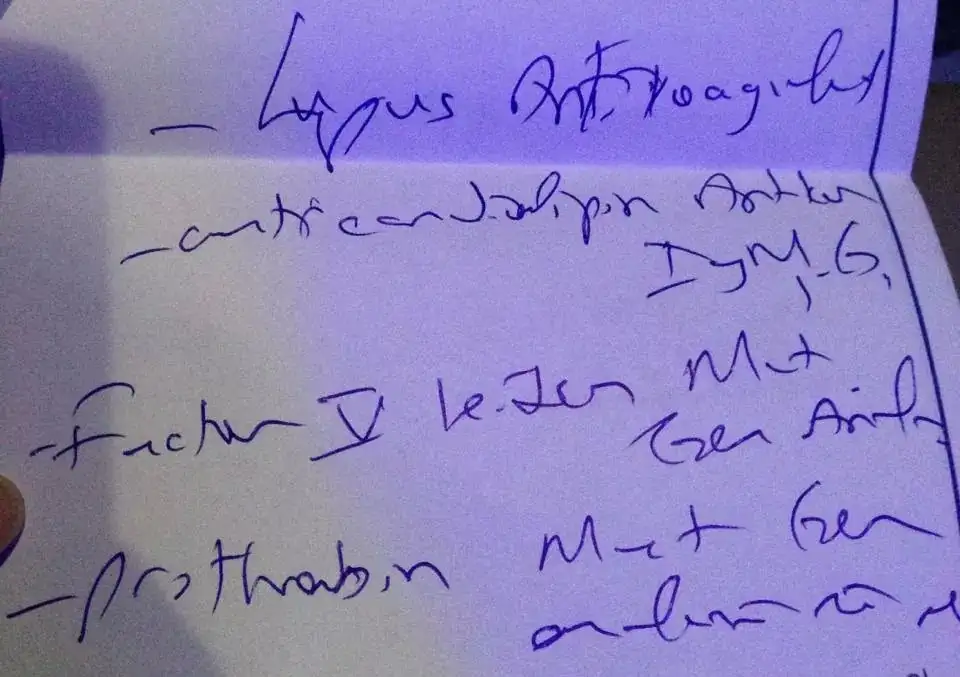 - Lupus Anticoagulant
- anticardiolipin Antikor
IgM, G.
- Factor V Leiden Mut
Gen
- prothrombin Mut Gen